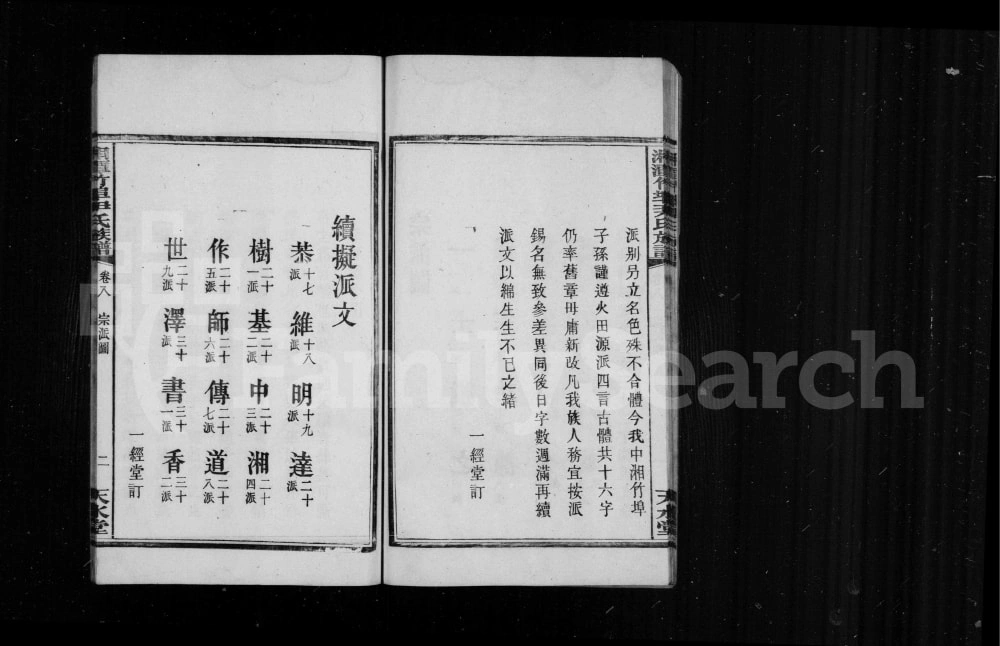 湘潭竹埠尹氏族譜
派別另立名色殊不合體今我中湘竹埠
子孫謹遵火田源派四言古體共十六字
仍率舊章毋庸新改凡我族人務宜按派
錫名無致參差異同後日字數週滿再續
派文以綿生生不已之緒
一經堂訂
天水堂
續擬派文
恭十七派 維十八派 明十九派 達二十派
樹二十一派 基二十二派 中二十三派 湘二十四派
作二十五派 師二十六派 傳二十七派 道二十八派
世二十九派 澤三十派 書三十一派 香三十二派
一經堂訂
湘潭竹埠尹氏族譜
卷八 宗派圖
二
天水堂
FamilySearch